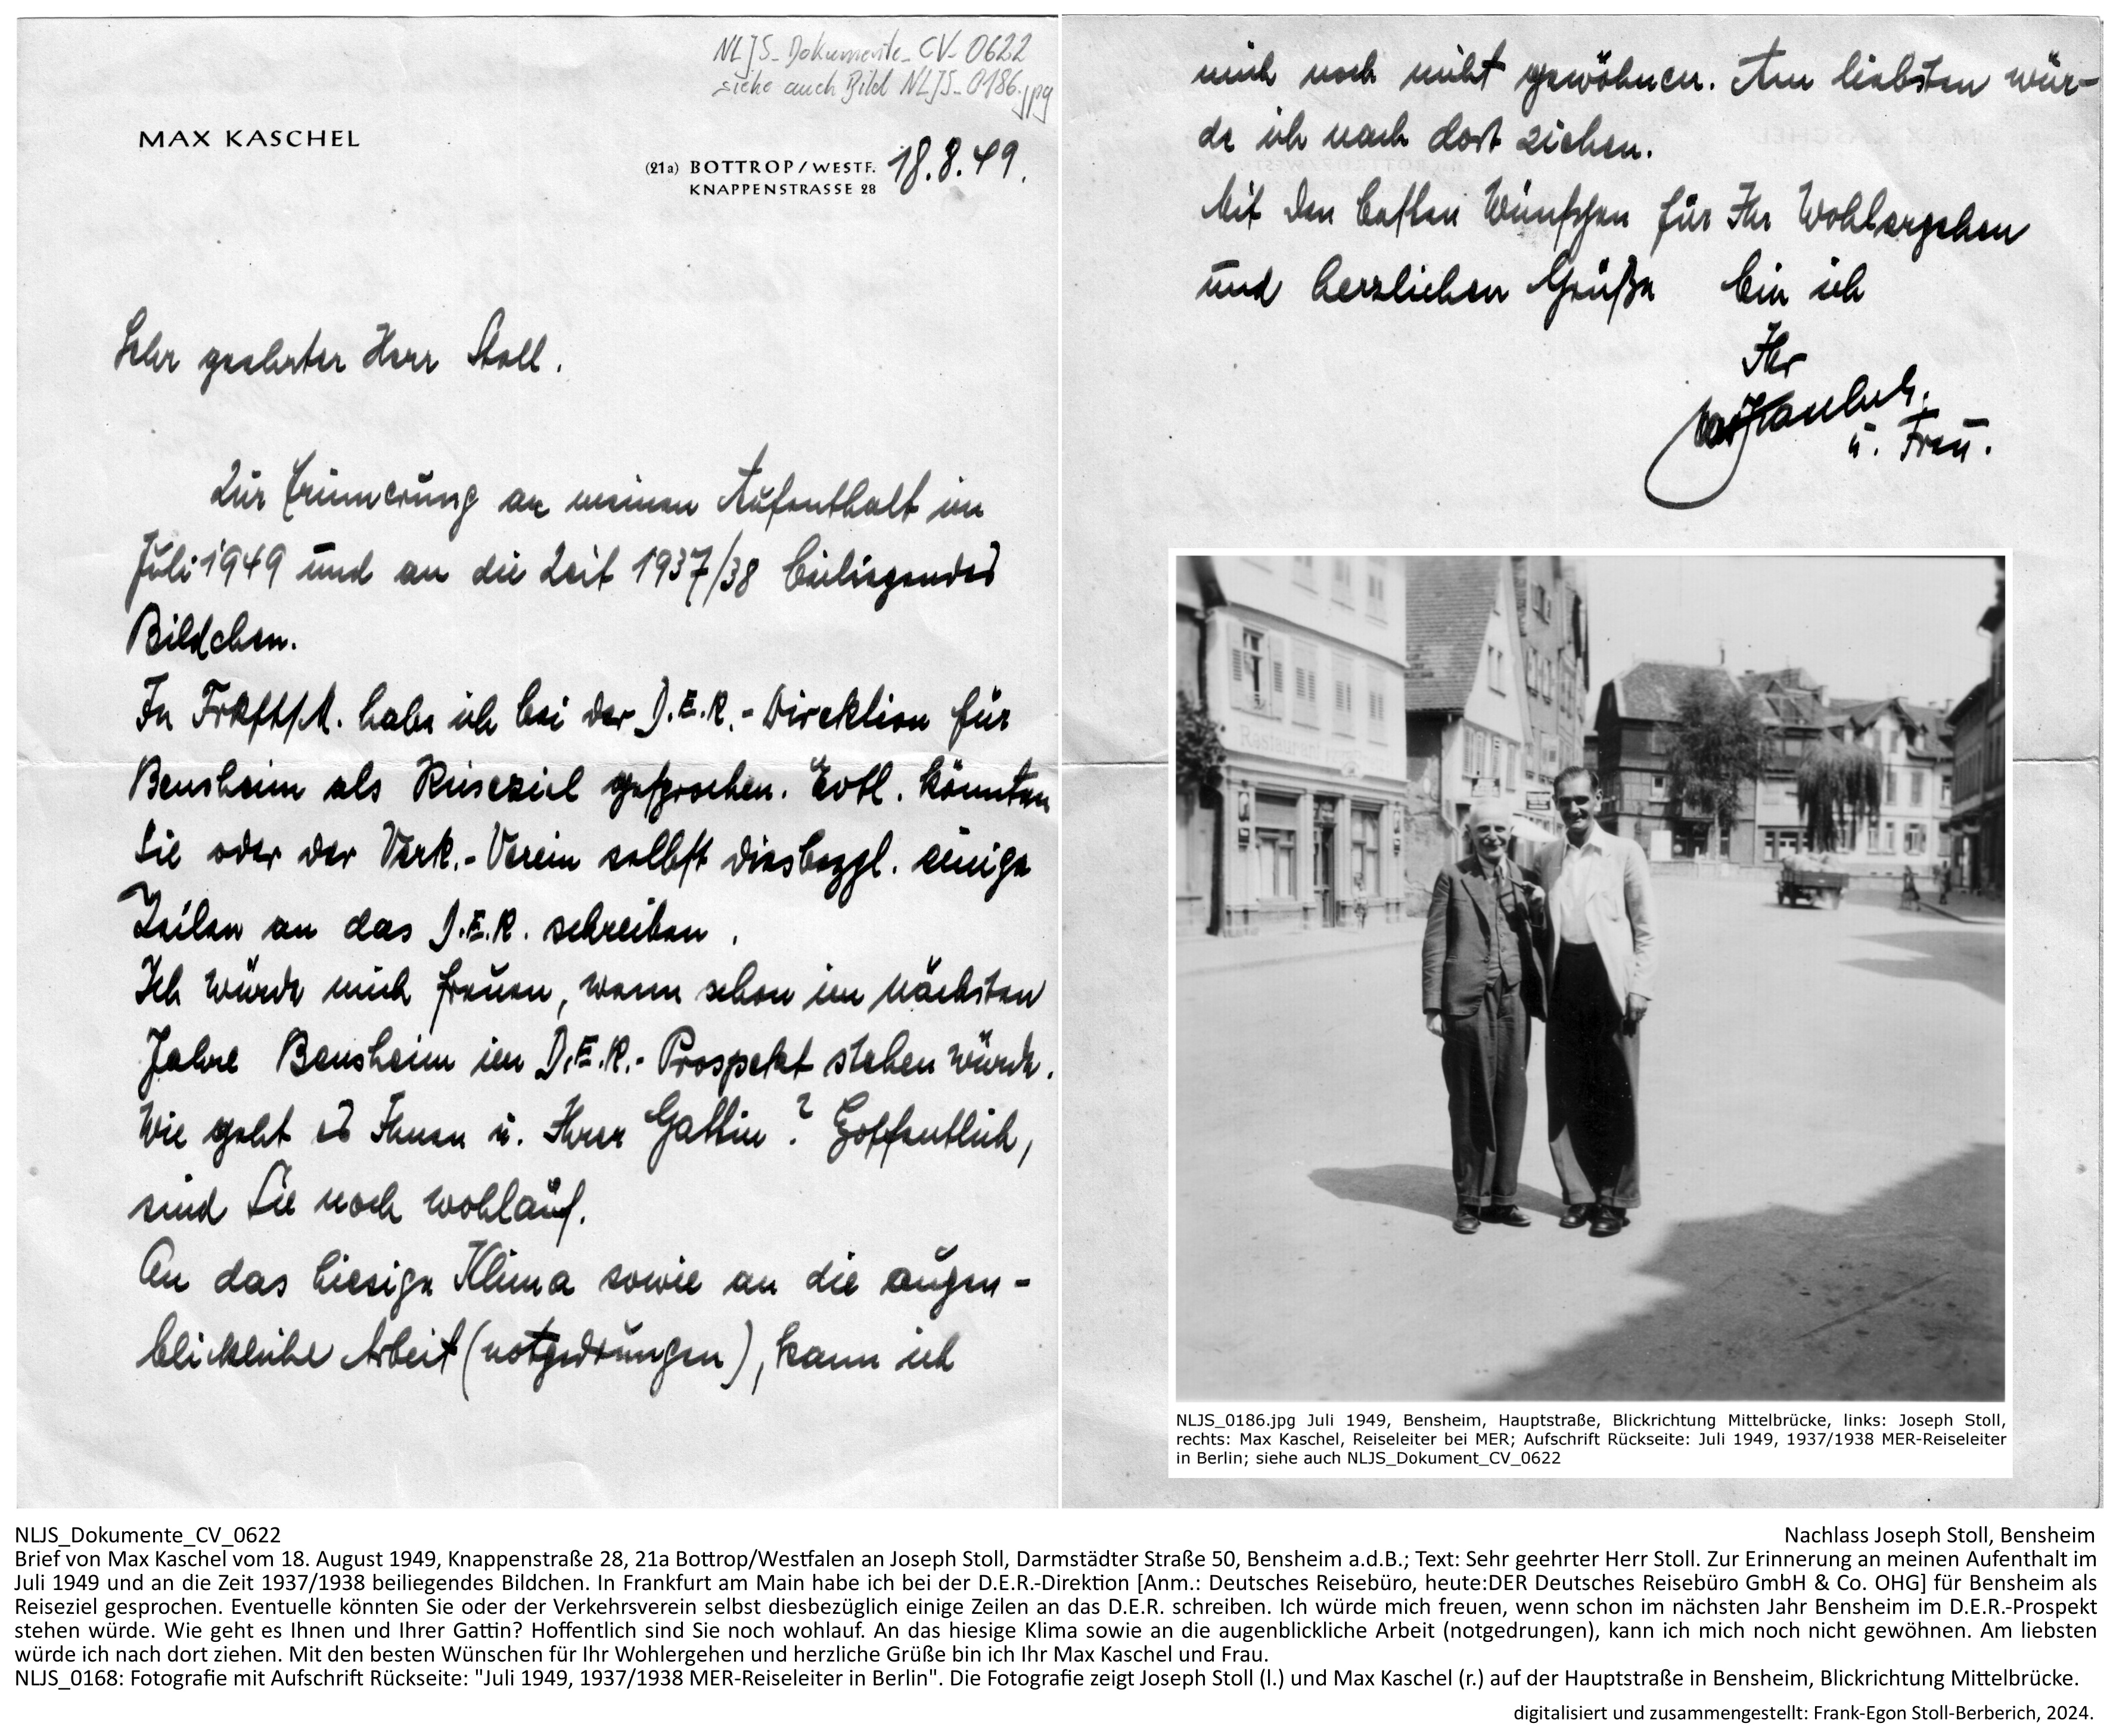 NLJS_Dokumente_CV_0622
siehe auch Bild NLJS_0186.jpg
MAX KASCHEL
(21a) BOTTROP/WESTF. 18.8.49.
KNAPPENSTRASSE 28
Sehr geehrter Herr Stoll.
Zur Erinnerung an meinen Aufenthalt im
Juli 1949 und an die Zeit 1937/38 beiliegendes
Bildchen.
In Frkft/M. habe ich bei der D.E.R.-Direktion für
Bensheim als Reiseziel gesprochen. Evtl. könnten
Sie oder der Verk.-Verein selbst diesbezgl. einige
Zeilen an das D.E.R. schreiben.
Ich würde mich freuen, wenn schon im nächsten
Jahre Bensheim im D.E.R.-Prospekt stehen würde.
Wie geht es Ihnen u. Ihrer Gattin? Hoffentlich,
sind Sie noch wohlauf.
An das hiesige Klima sowie an die augen-
blickliche Arbeit (notgedrungen), kann ich
mich noch nicht gewöhnen. Am liebsten wür-
de ich nach dort ziehen.
Mit den besten Wünschen für Ihr Wohlergehen
und herzlichen Grüße bin ich
Ihr
Max Kaschel.
u. Frau.
Restaurant
NLJS_0186.jpg Juli 1949, Bensheim, Hauptstraße, Blickrichtung Mittelbrücke, links: Joseph Stoll,
rechts: Max Kaschel, Reiseleiter bei MER; Aufschrift Rückseite: Juli 1949, 1937/1938 MER-Reiseleiter
in Berlin; siehe auch NLJS_Dokument_CV_0622
NLJS_Dokumente_CV_0622 Nachlass Joseph Stoll, Bensheim
Brief von Max Kaschel vom 18. August 1949, Knappenstraße 28, 21a Bottrop/Westfalen an Joseph Stoll, Darmstädter Straße 50, Bensheim a.d.B.; Text: Sehr geehrter Herr Stoll. Zur Erinnerung an meinen Aufenthalt im
Juli 1949 und an die Zeit 1937/1938 beiliegendes Bildchen. In Frankfurt am Main habe ich bei der D.E.R.-Direktion [Anm.: Deutsches Reisebüro, heute:DER Deutsches Reisebüro GmbH & Co. OHG] für Bensheim als
Reiseziel gesprochen. Eventuelle könnten Sie oder der Verkehrsverein selbst diesbezüglich einige Zeilen an das D.E.R. schreiben. Ich würde mich freuen, wenn schon im nächsten Jahr Bensheim im D.E.R.-Prospekt
stehen würde. Wie geht es Ihnen und Ihrer Gattin? Hoffentlich sind Sie noch wohlauf. An das hiesige Klima sowie an die augenblickliche Arbeit (notgedrungen), kann ich mich noch nicht gewöhnen. Am liebsten
würde ich nach dort ziehen. Mit den besten Wünschen für Ihr Wohlergehen und herzliche Grüße bin ich Ihr Max Kaschel und Frau.
NLJS_0168: Fotografie mit Aufschrift Rückseite: "Juli 1949, 1937/1938 MER-Reiseleiter in Berlin". Die Fotografie zeigt Joseph Stoll (l.) und Max Kaschel (r.) auf der Hauptstraße in Bensheim, Blickrichtung Mittelbrücke.
digitalisiert und zusammengestellt: Frank-Egon Stoll-Berberich, 2024.